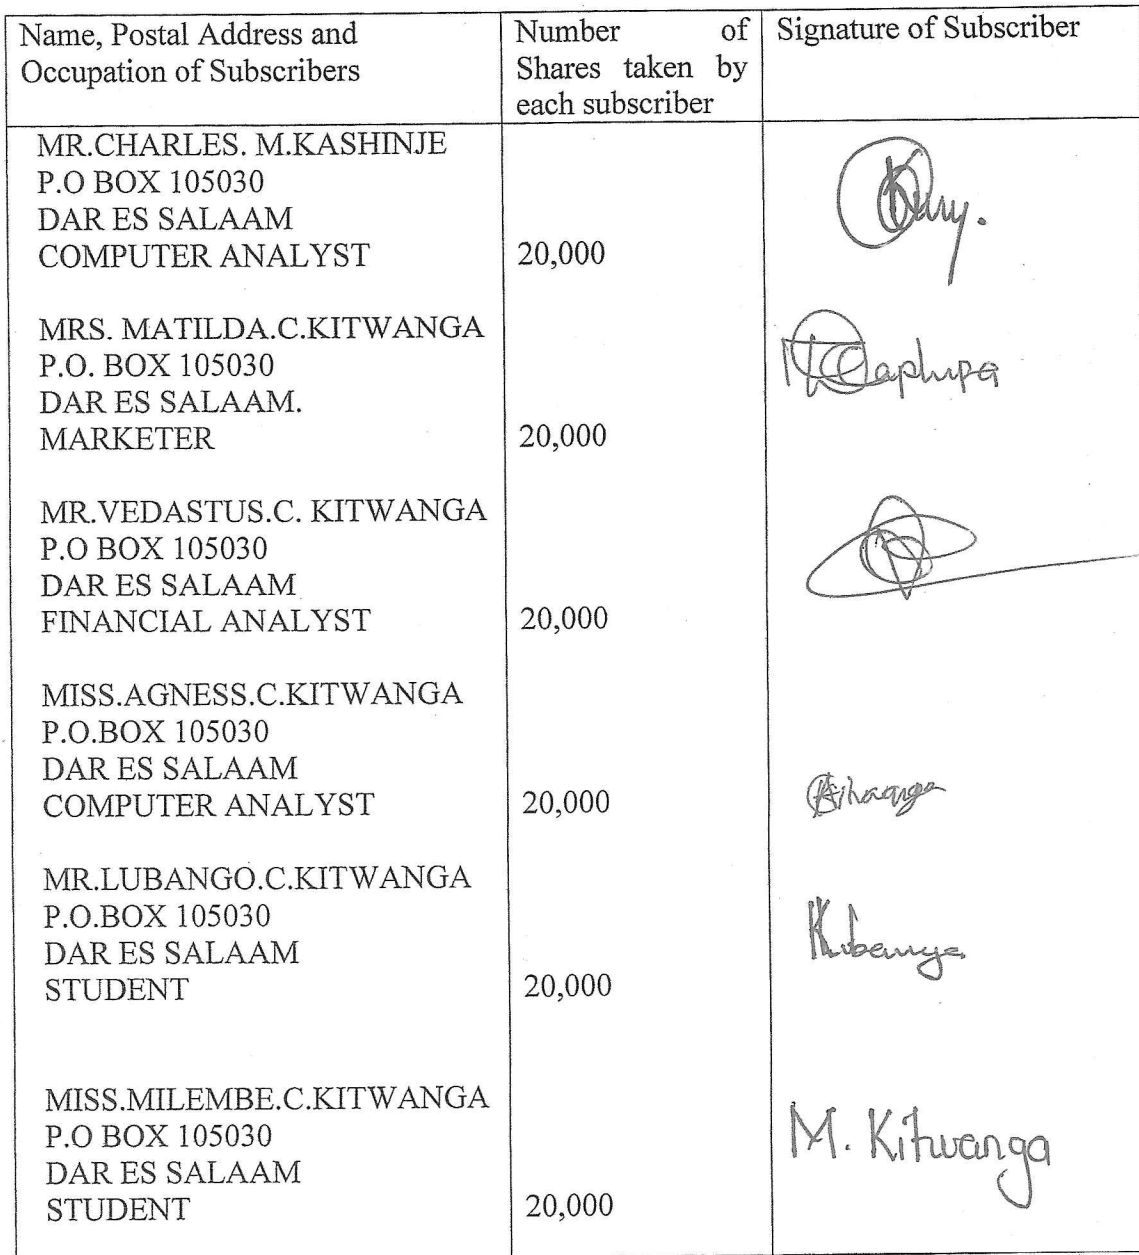 Name, Postal Address and
Occupation of Subscribers
Number of
Shares taken by
each subscriber
Signature of Subscriber
MR.CHARLES. M.KASHINJE
P.O BOX 105030
DAR ES SALAAM
COMPUTER ANALYST 20,000
MRS. MATILDA.C.KITWANGA
P.O. BOX 105030
DAR ES SALAAM.
MARKETER 20,000
MR.VEDASTUS.C. KITWANGA
P.O BOX 105030
DAR ES SALAAM
FINANCIAL ANALYST 20,000
MISS.AGNESS.C.KITWANGA
P.O.BOX 105030
DAR ES SALAAM
COMPUTER ANALYST 20,000
MR.LUBANGO.C.KITWANGA
P.O.BOX 105030
DAR ES SALAAM
STUDENT 20,000
MISS.MILEMBE.C.KITWANGA
P.O BOX 105030
DAR ES SALAAM
STUDENT 20,000
M. Kitwanga